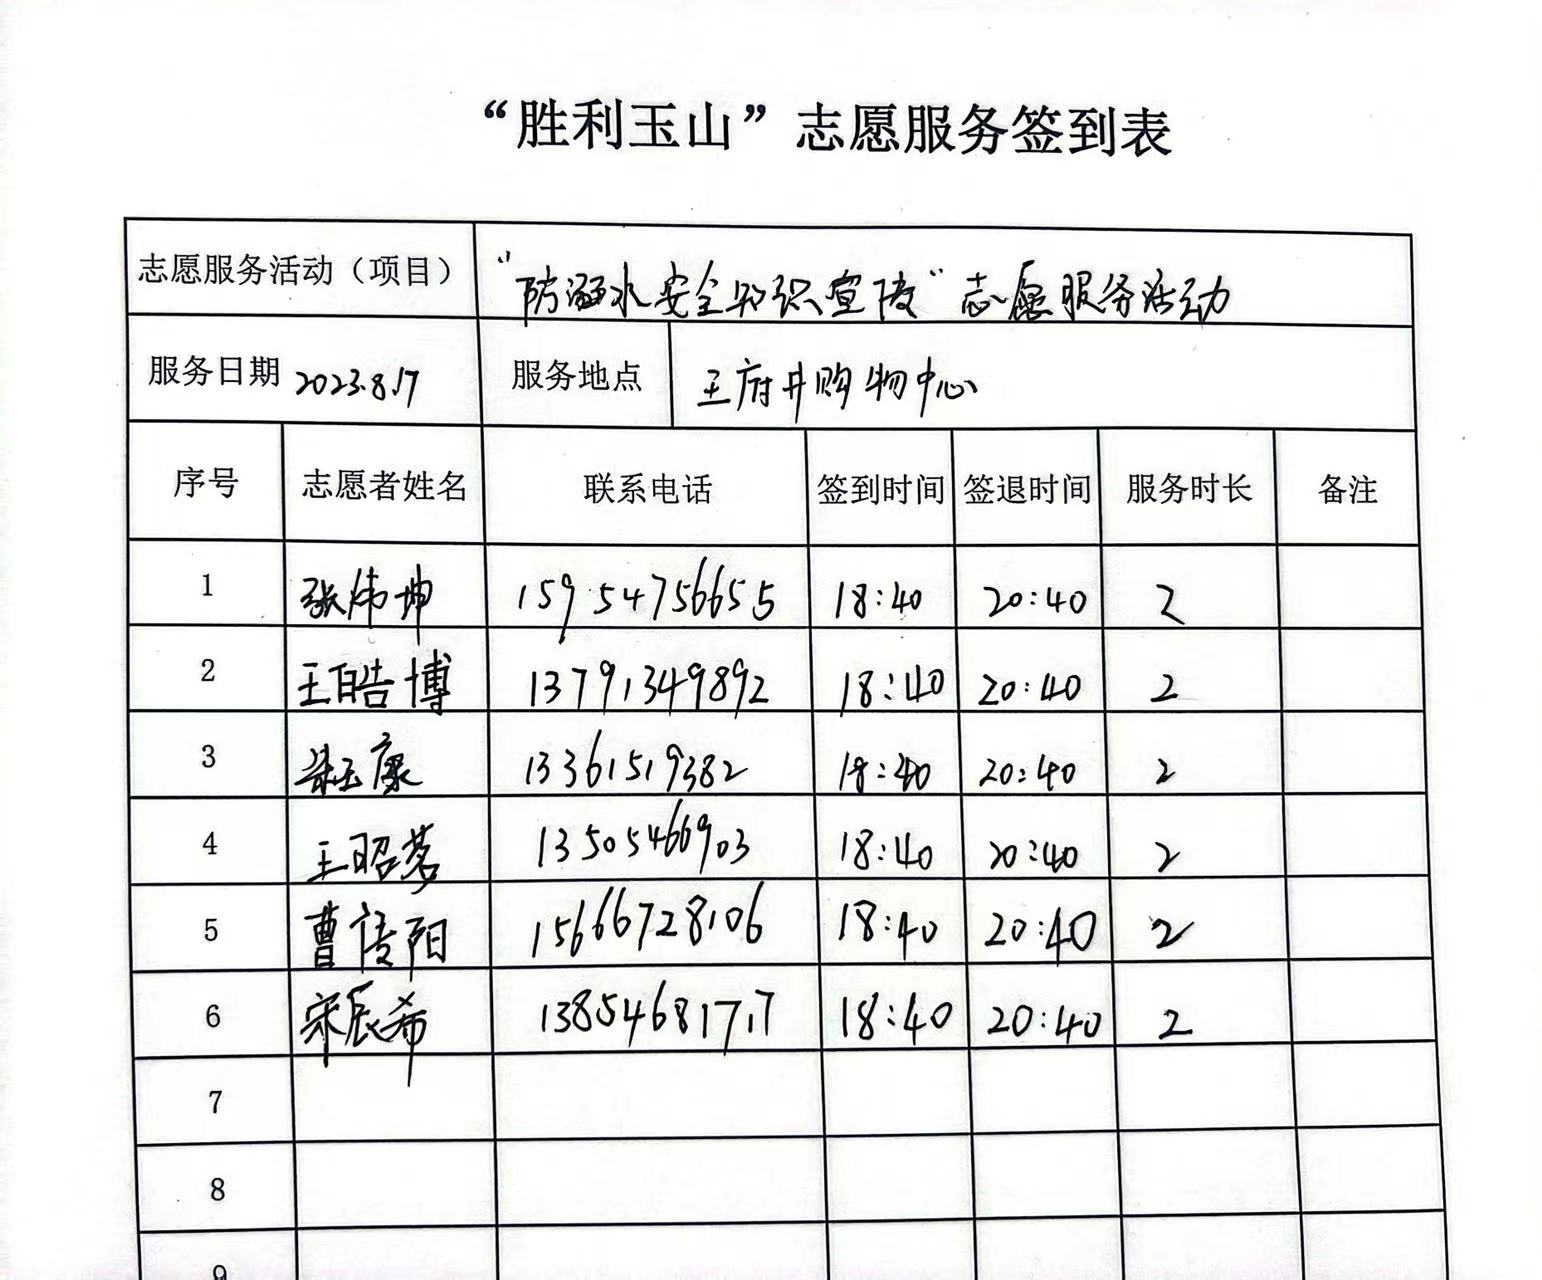 “胜利玉山”志愿服务签到表
志愿服务活动（项目） “防溺水安全知识宣传”志愿服务活动
服务日期 2023.8.17 服务地点 王府井购物中心
序号 志愿者姓名 联系电话 签到时间 签退时间 服务时长 备注
1 张炜坤 15954756655 18:40 20:40 2
2 王皓博 13791349892 18:40 20:40 2
3 康 13361519382 18:40 20:40 2
4 王昭茗 13505466903 18:40 20:40 2
5 曹陵阳 15666728106 18:40 20:40 2
6 宋辰希 13854681717 18:40 20:40 2
7
8
9